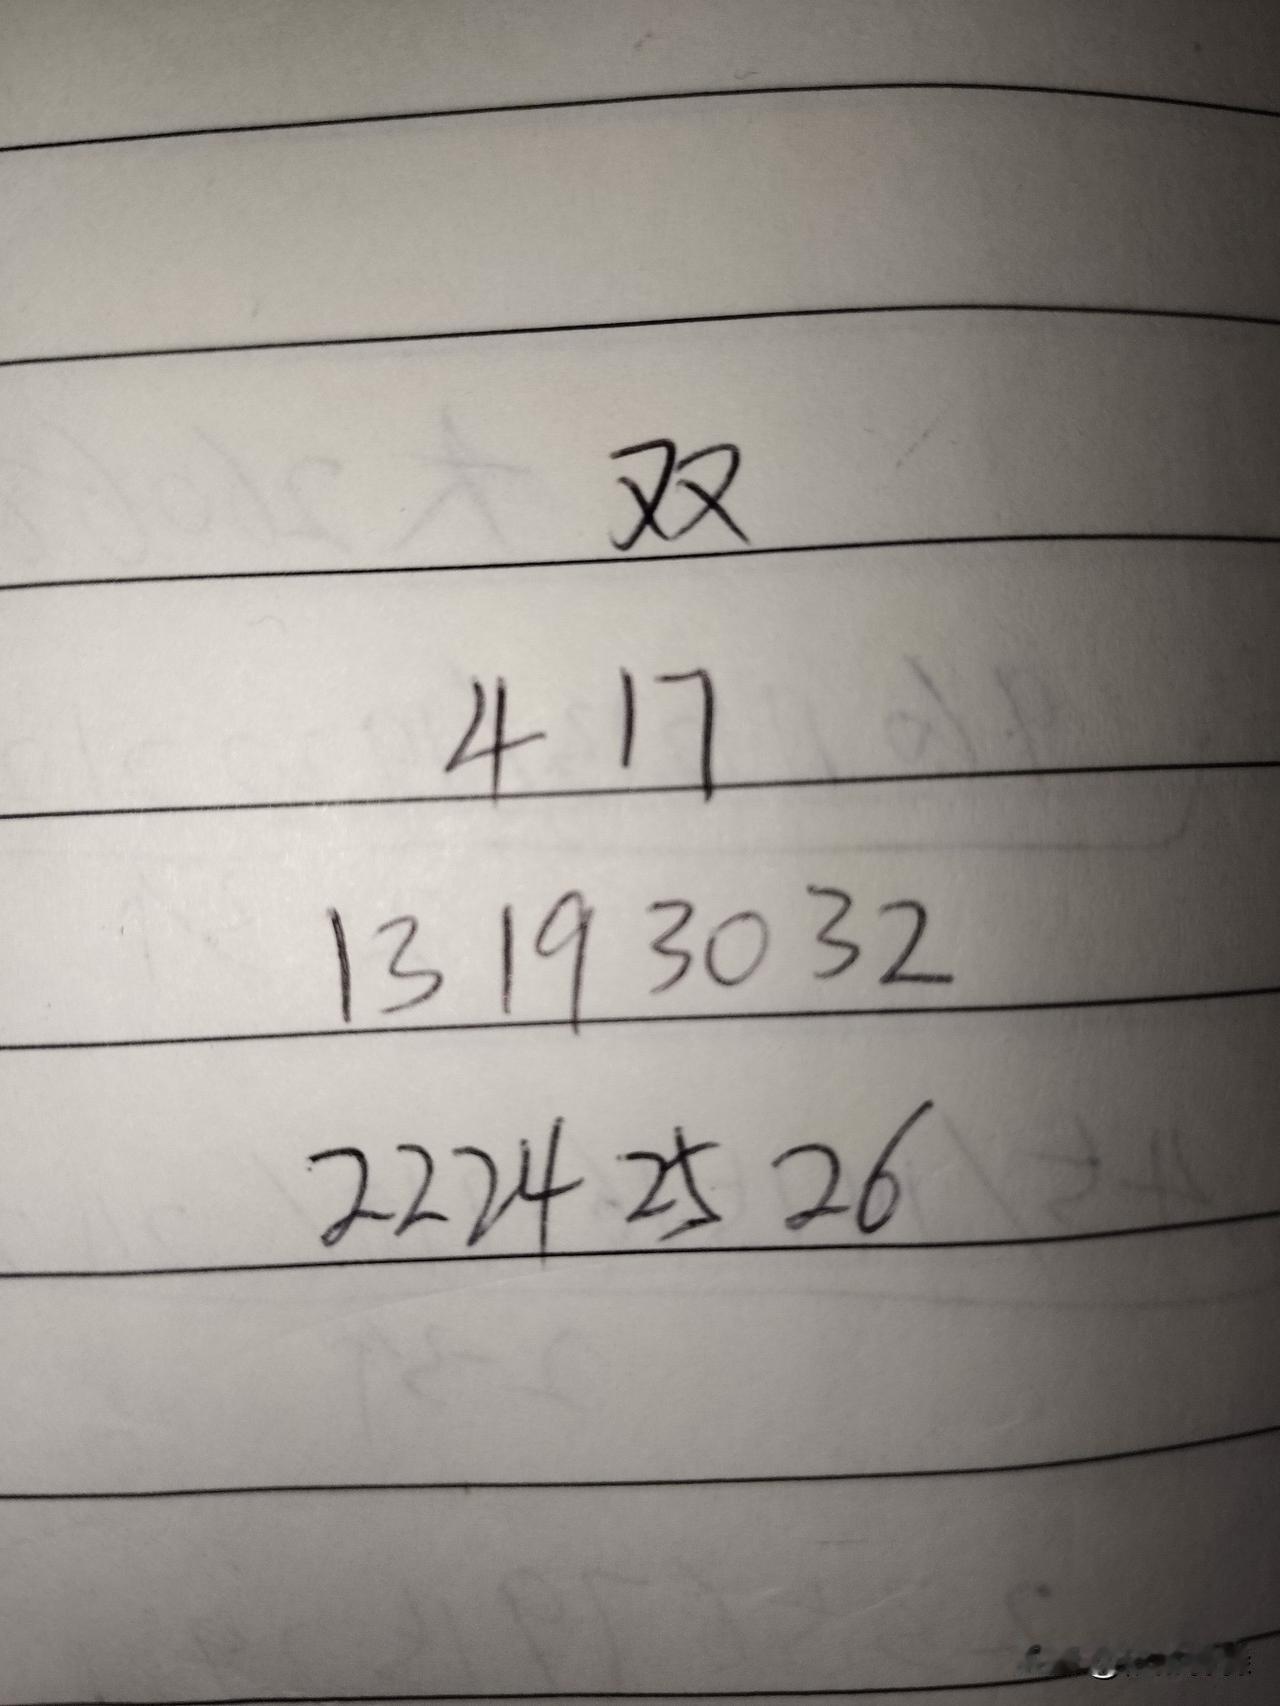 双
4 17
13 19 30 32
22 24 25 26